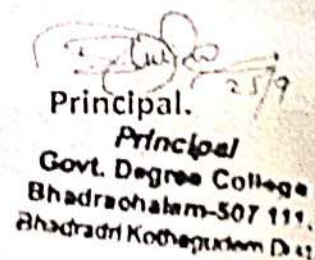 25/9
Principal.
Principal
Govt. Degree College
Bhadrachalam-507 111.
Bhadradri Kothagudem Dist